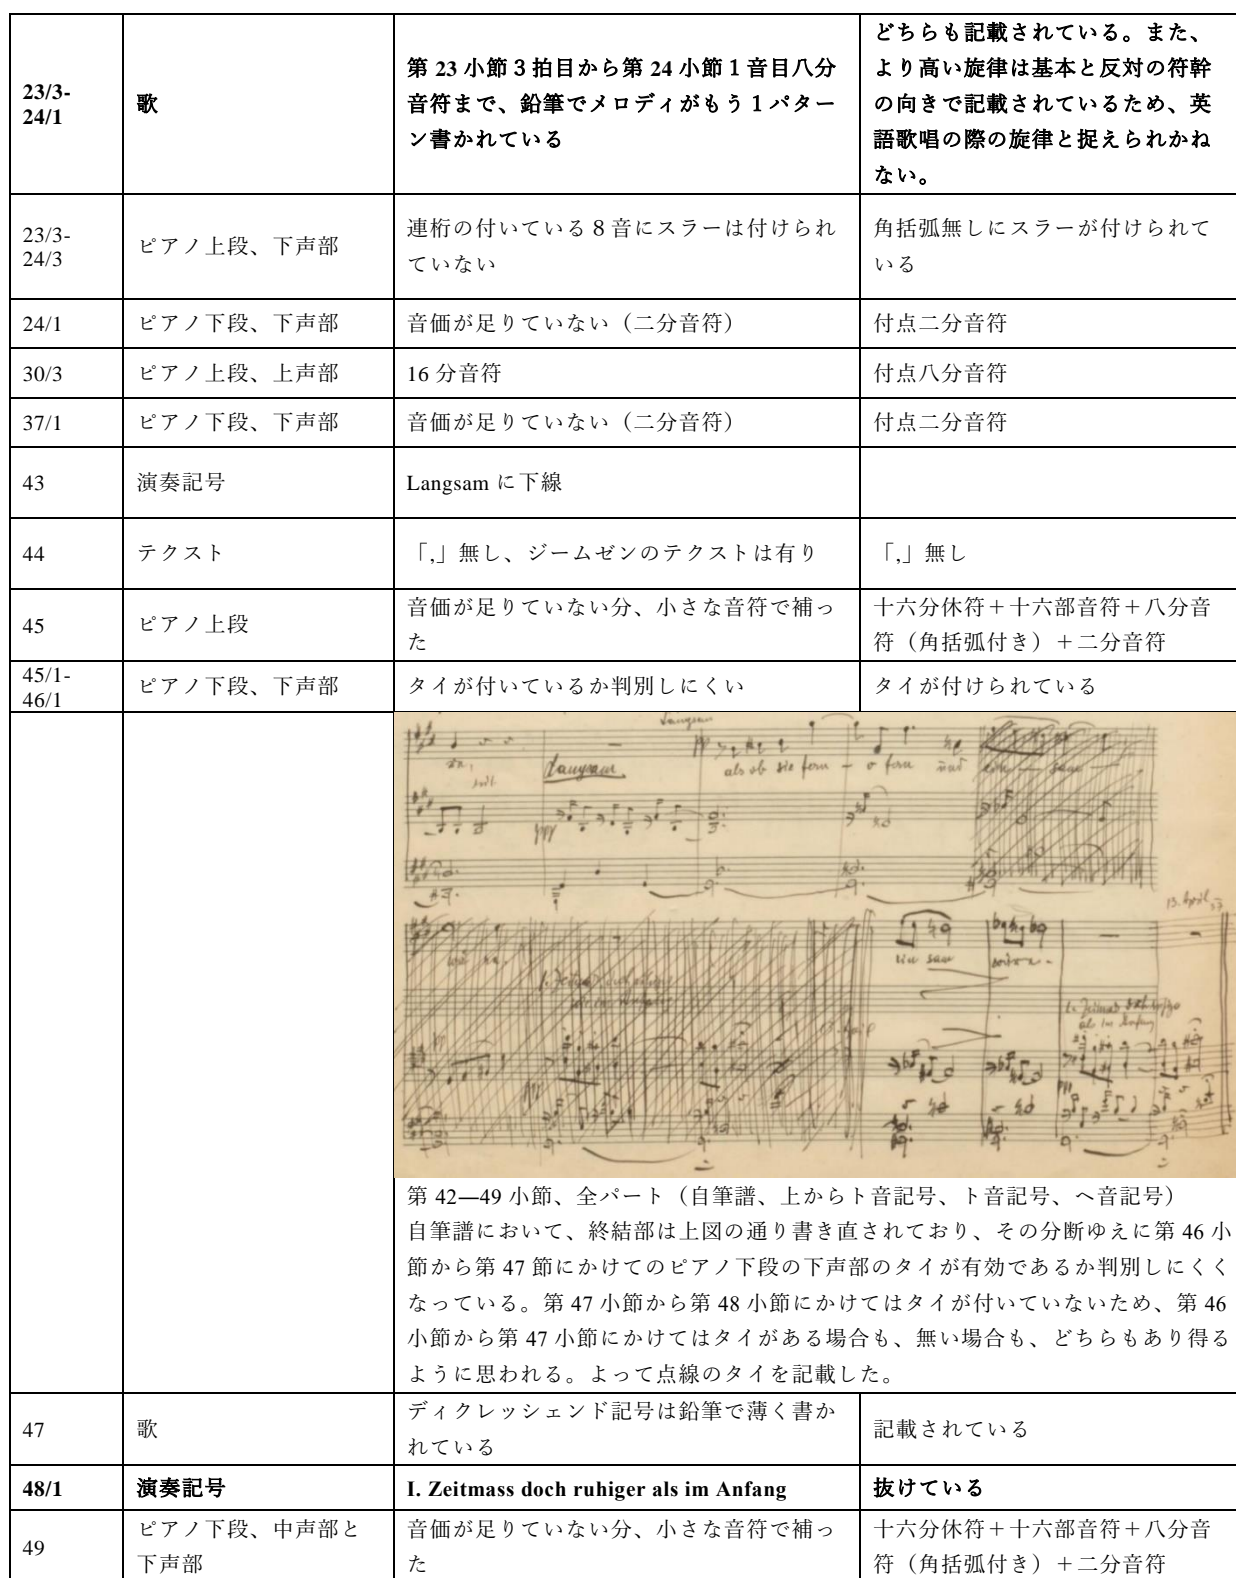 23/3-
24/1
歌
第 23 小節３拍目から第 24 小節１音目八分
音符まで、鉛筆でメロディがもう１パター
ン書かれている
どちらも記載されている。また、
より高い旋律は基本と反対の符幹
の向きで記載されているため、英
語歌唱の際の旋律と捉えられかね
ない。
23/3-
24/3
ピアノ上段、下声部
連桁の付いている８音にスラーは付けられ
ていない
角括弧無しにスラーが付けられて
いる
24/1
ピアノ下段、下声部
音価が足りていない（二分音符）
付点二分音符
30/3
ピアノ上段、上声部
16 分音符
付点八分音符
37/1
ピアノ下段、下声部
音価が足りていない（二分音符）
付点二分音符
43
演奏記号
Langsam に下線
44
テクスト
「,」無し、ジームゼンのテクストは有り
「,」無し
45
ピアノ上段
音価が足りていない分、小さな音符で補っ
た
十六分休符＋十六部音符＋八分音
符（角括弧付き）＋二分音符
45/1-
46/1
ピアノ下段、下声部
タイが付いているか判別しにくい
タイが付けられている
Langsam
Langsam
als ob sie fern – o fern und ein – sam
ein sam
13. April
als im Anfang
第 42―49 小節、全パート（自筆譜、上からト音記号、ト音記号、ヘ音記号）
自筆譜において、終結部は上図の通り書き直されており、その分断ゆえに第 46 小
節から第 47 節にかけてのピアノ下段の下声部のタイが有効であるか判別しにくく
なっている。第 47 小節から第 48 小節にかけてはタイが付いていないため、第 46
小節から第 47 小節にかけてはタイがある場合も、無い場合も、どちらもあり得る
ように思われる。よって点線のタイを記載した。
47
歌
ディクレッシェンド記号は鉛筆で薄く書か
れている
記載されている
48/1
演奏記号
I. Zeitmass doch ruhiger als im Anfang
抜けている
49
ピアノ下段、中声部と
下声部
音価が足りていない分、小さな音符で補っ
た
十六分休符＋十六部音符＋八分音
符（角括弧付き）＋二分音符